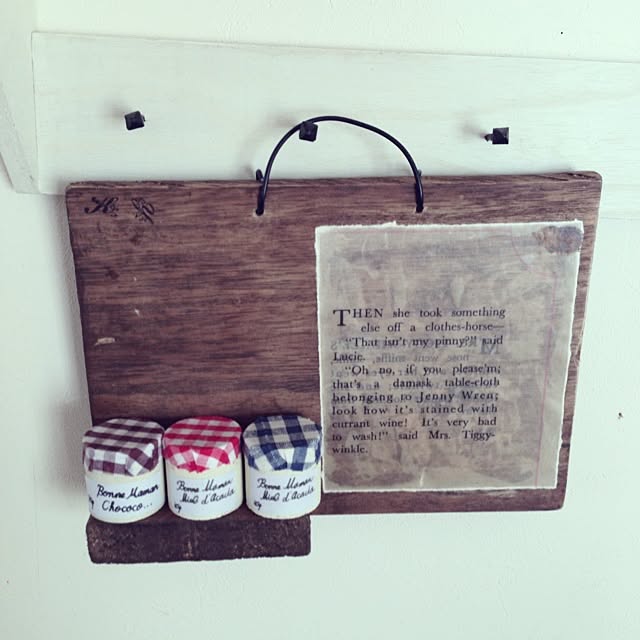 THEN she took something
else off a clothes-horse—
"That isn't my pinny?" said
Lucie.
"Oh no, if you please'm;
that's a damask table-cloth
belonging to Jenny Wren;
look how it's stained with
currant wine! It's very bad
to wash!" said Mrs. Tiggy-
winkle.
Bonne Maman
Chococo...
Bonne Maman
Miel d'Acacia
Bonne Maman
Miel d'Acacia